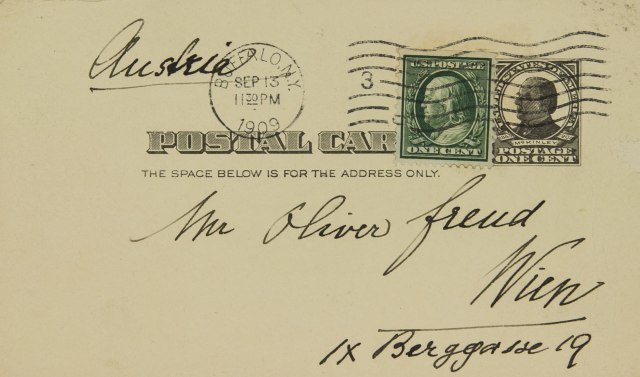 Austria
BUFFALO, N.Y.
SEP 13
11 30 PM
1909
3
U.S. POSTAGE
ONE CENT
UNITED STATES OF AMERICA
McKINLEY
POSTAGE
ONE CENT
POSTAL CAR
THE SPACE BELOW IS FOR THE ADDRESS ONLY.
Mr Oliver Freud
Wien
IX Berggasse 19